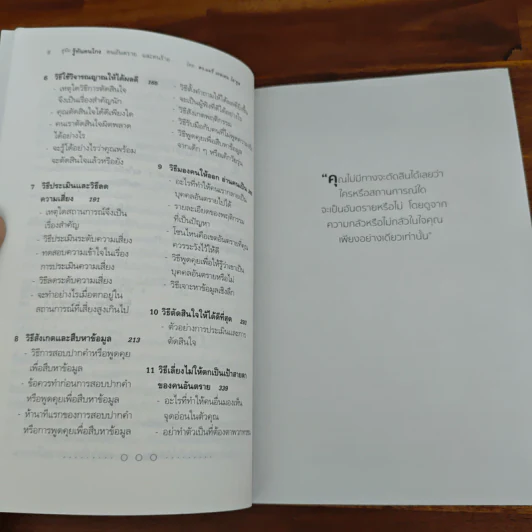 6 วิธีใช้วิจารณญาณให้ได้ผลดี 169
- เหตุใดวิธีการตัดสินใจ
จึงเป็นเรื่องสำคัญนัก
- คุณตัดสินใจได้ดีเพียงใด
- คนเราตัดสินใจผิดพลาด
ได้อย่างไร
- จะรู้ได้อย่างไรว่าคุณพร้อม
จะตัดสินใจแล้วหรือยัง
7 วิธีประเมินและวิธีลด
ความเสี่ยง 191
- เหตุใดสถานการณ์จึงเป็น
เรื่องสำคัญ
- วิธีประเมินระดับความเสี่ยง
- ทดสอบความเข้าใจในเรื่อง
การประเมินความเสี่ยง
- วิธีลดระดับความเสี่ยง
- จะทำอย่างไรเมื่อตกอยู่ใน
สถานการณ์ที่เสี่ยงสูงเกินไป
8 วิธีสังเกตและสืบหาข้อมูล 213
- วิธีการสอบปากคำหรือพูดคุย
เพื่อสืบหาข้อมูล
- ข้อควรทำก่อนการสอบปากคำ
หรือพูดคุยเพื่อสืบหาข้อมูล
- ห้านาทีแรกของการสอบปากคำ
หรือการพูดคุยเพื่อสืบหาข้อมูล
- วิธีตั้งคำถามให้ได้ผล
- จะเป็นผู้ฟังที่ดีได้อย่างไร
- วิธีสังเกตพฤติกรรม
- วิธีรับมือกับคนที่ไม่
- วิธีพูดคุยเพื่อสืบหาข้อมูล
จากเด็ก ๆ หรือเด็กวัยรุ่น
9 วิธีมองคนให้ออก อ่านคนเป็น
- อะไรที่ทำให้คนเรากลายเป็น
บุคคลอันตรายไปได้
- รายละเอียดของพฤติกรรม
ที่เป็นปัญหา
- โซนไหนคือเขตอันตรายที่คุณ
ควรระวังไว้ให้ดี
- วิธีพูดคุยเพื่อให้รู้ว่าเขาเป็น
บุคคลอันตรายหรือไม่
- วิธีเจาะหาข้อมูลเชิงลึก
10 วิธีตัดสินใจให้ได้ดีที่สุด
- ตัวอย่างการประเมินและการ
ตัดสินใจ
11 วิธีเลี่ยงไม่ให้ตกเป็นเป้าสายตา
ของคนอันตราย 339
- อะไรที่ทำให้คนอื่นมองเห็น
จุดอ่อนในตัวคุณ
- อย่าทำตัวเป็นที่ต้องตา
"คุณไม่มีทางจะตัดสินได้เลยว่า
ใครหรือสถานการณ์ใด
จะเป็นอันตรายหรือไม่ โดยดูจาก
ความกลัวหรือไม่กลัวในใจคุณ
เพียงอย่างเดียวเท่านั้น"